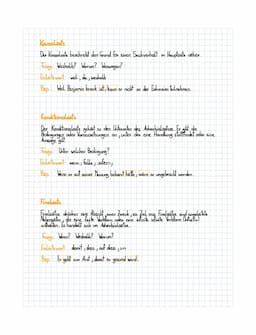 Kausalsatz
Der Kausalsatz beschreibt den Grund für einen Sachverhalt im Hauptsatz näher.
Frage: Weshalb? Warum? Weswegen?
Einleitewort: weil, da, weshalb
Bsp.: Weil Benjamin krank ist, kann er nicht an der Exkursion teilnehmen.
Konditionalsatz
Der Konditionalsatz gehört zu den Untersorten des Adverbialsatzes. Er gibt die
Bedingungen oder Voraussetzungen an, unter der eine Handlung stattfindet oder eine
Aussage gilt.
Frage: Unter welcher Bedingung?
Einleitewort: wenn, falls, sofern
Bsp.: Wenn er mit seiner Meinung bekannt hätte, wäre er umgebracht worden.
Finalsatz
Finalsätze beziehen eine Absicht, einen Zweck, ein Ziel aus. Finalsätze sind eingeleitete
Nebensätze, die eine finite Verbform oder eine infinite Verbform (Infinitiv)
enthalten. Es handelt sich um Adverbialsätze.
Frage: Wozu? Weshalb? Warum?
Einleitewort: damit, dass, auf dass, um
Bsp.: Er geht zum Arzt, damit er gesund wird.